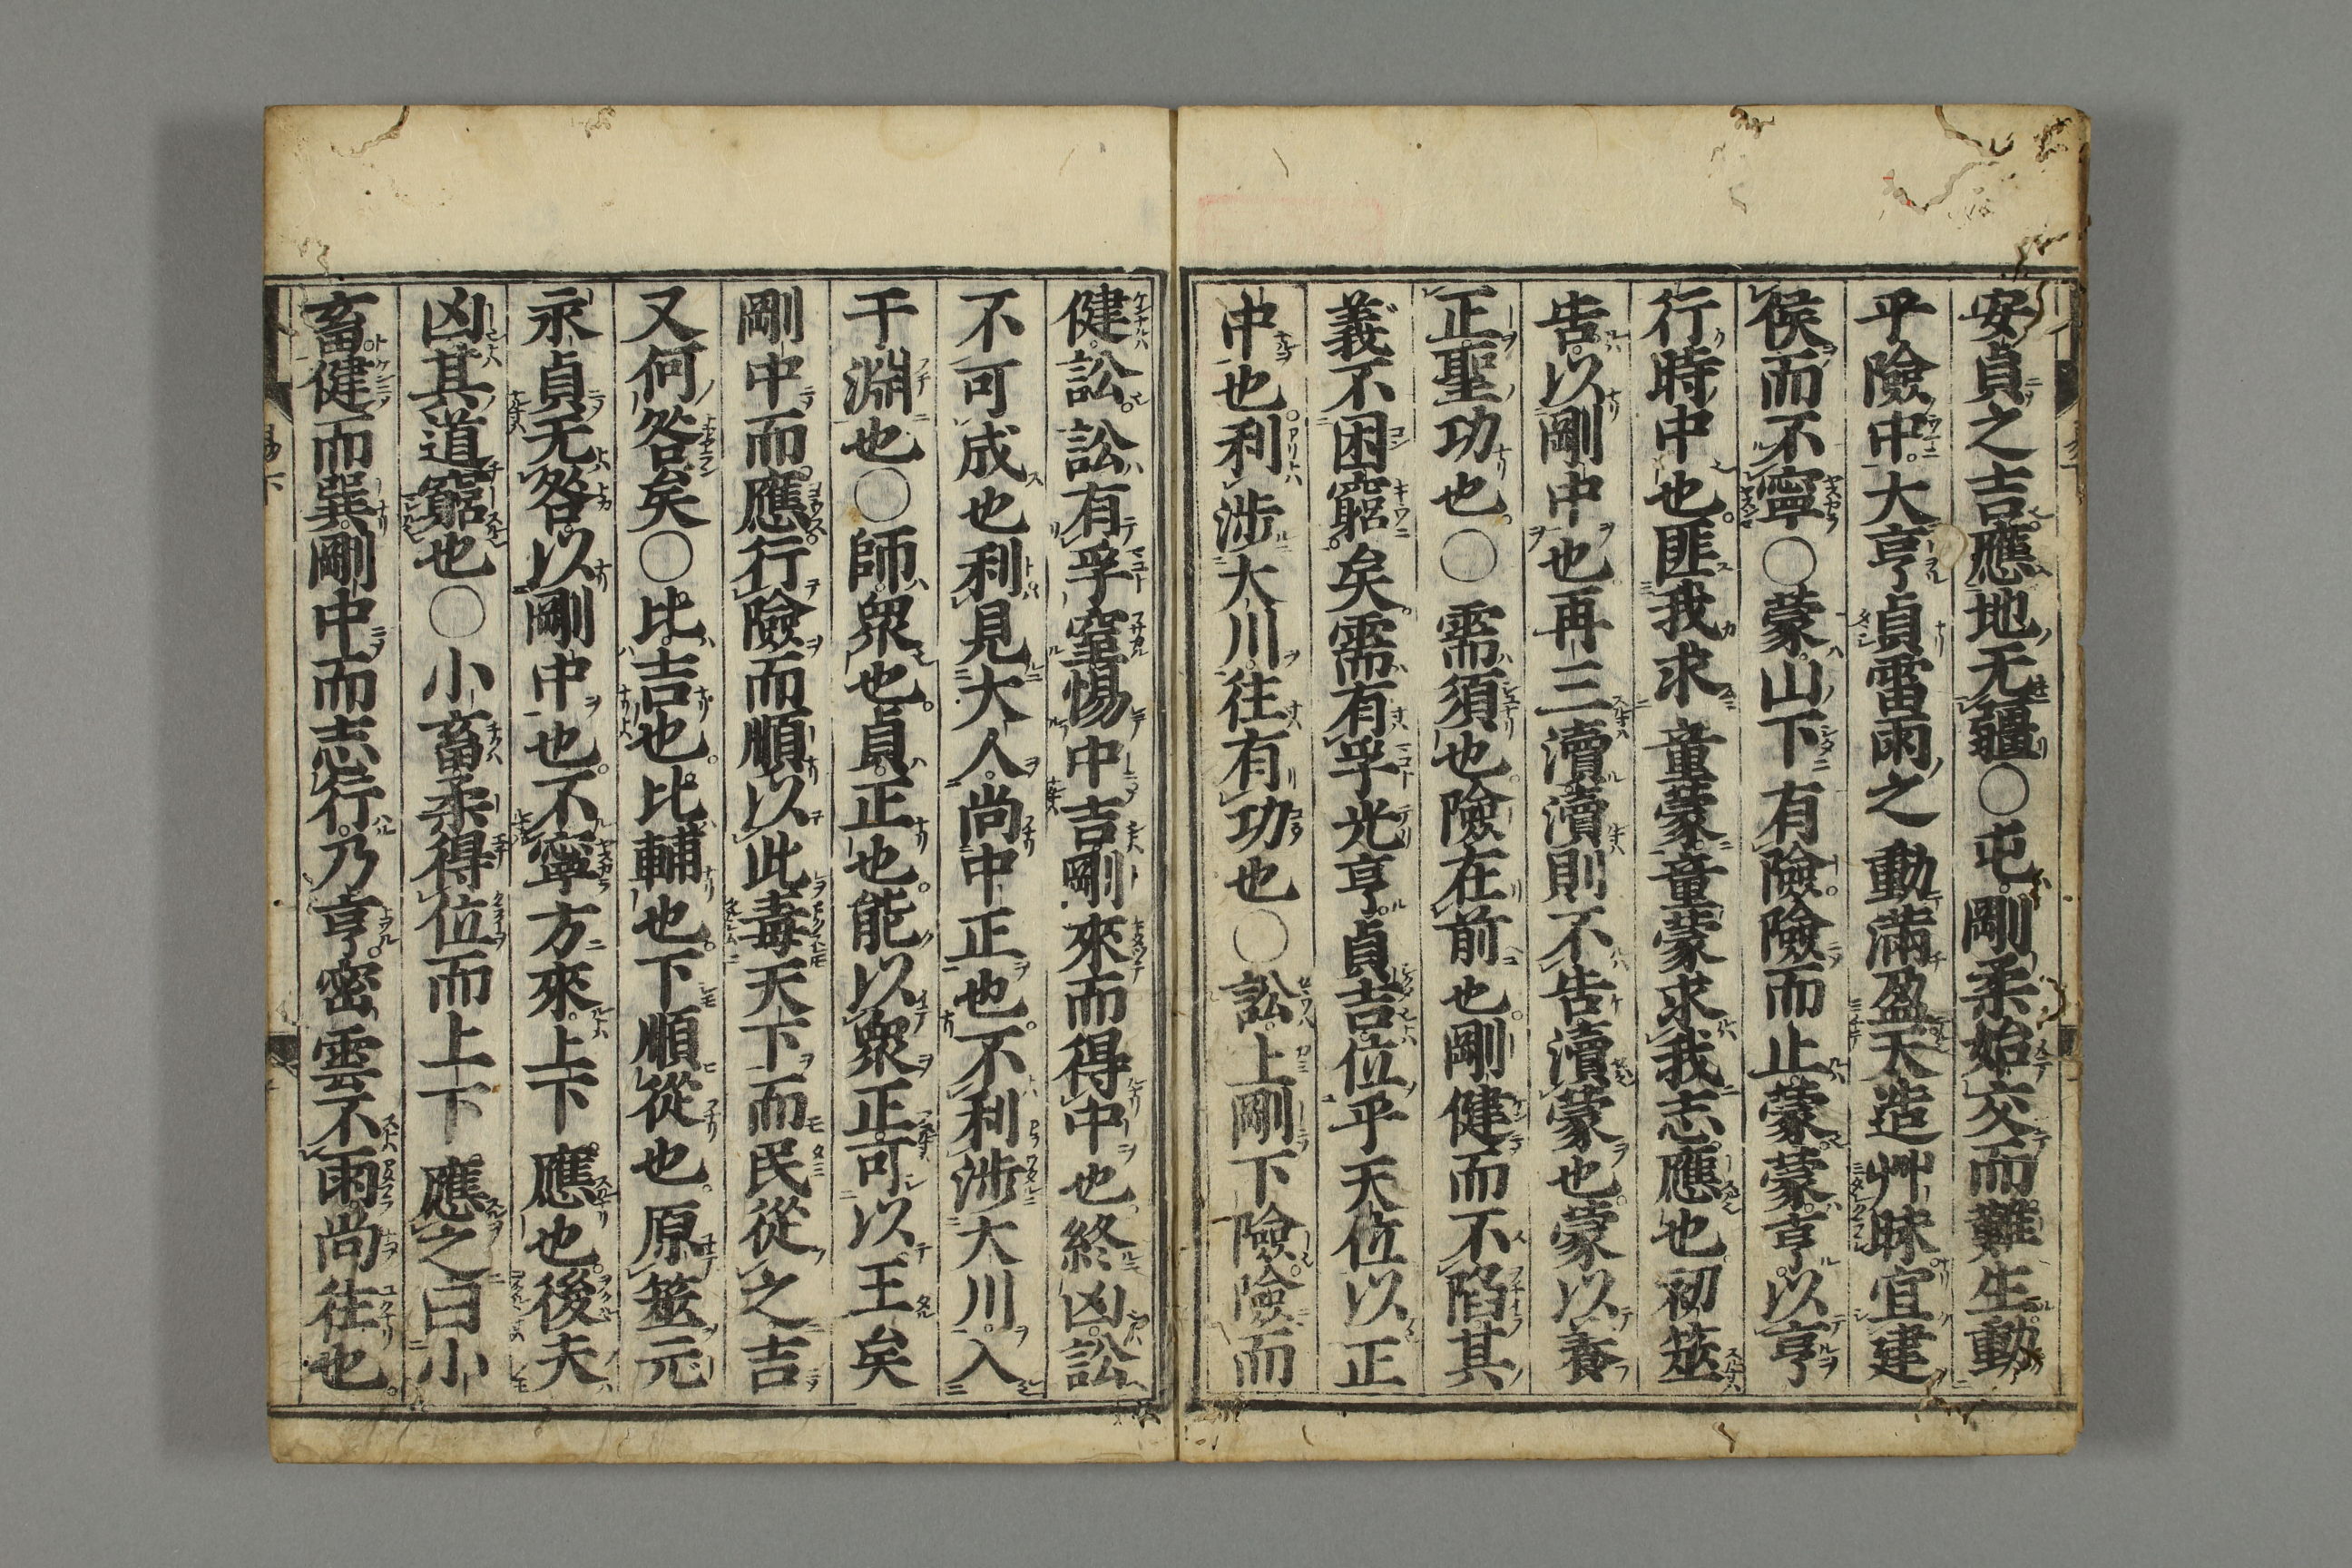 安貞之吉應地无疆○屯剛柔始交而難生動
乎險中大亨貞雷雨之動滿盈天造艸昧宜建
侯而不寧○蒙山下有險險而止蒙蒙亨以亨
行時中也匪我求童蒙童蒙求我志應也初筮
告以剛中也再三瀆瀆則不告瀆蒙也蒙以養
正聖功也○需須也險在前也剛健而不陷其
義不困窮矣需有孚光亨貞吉位乎天位以正
中也利涉大川往有功也○訟上剛下險險而
健訟訟有孚窒惕中吉剛來而得中也終凶訟
不可成也利見大人尚中正也不利涉大川入
于淵也○師衆也貞正也能以衆正可以王矣
剛中而應行險而順以此毒天下而民從之吉
又何咎矣○比吉也比輔也下順從也原筮元
永貞无咎以剛中也不寧方來上下應也後夫
凶其道窮也○小畜柔得位而上下應之曰小
畜健而巽剛中而志行乃亨密雲不雨尚往也